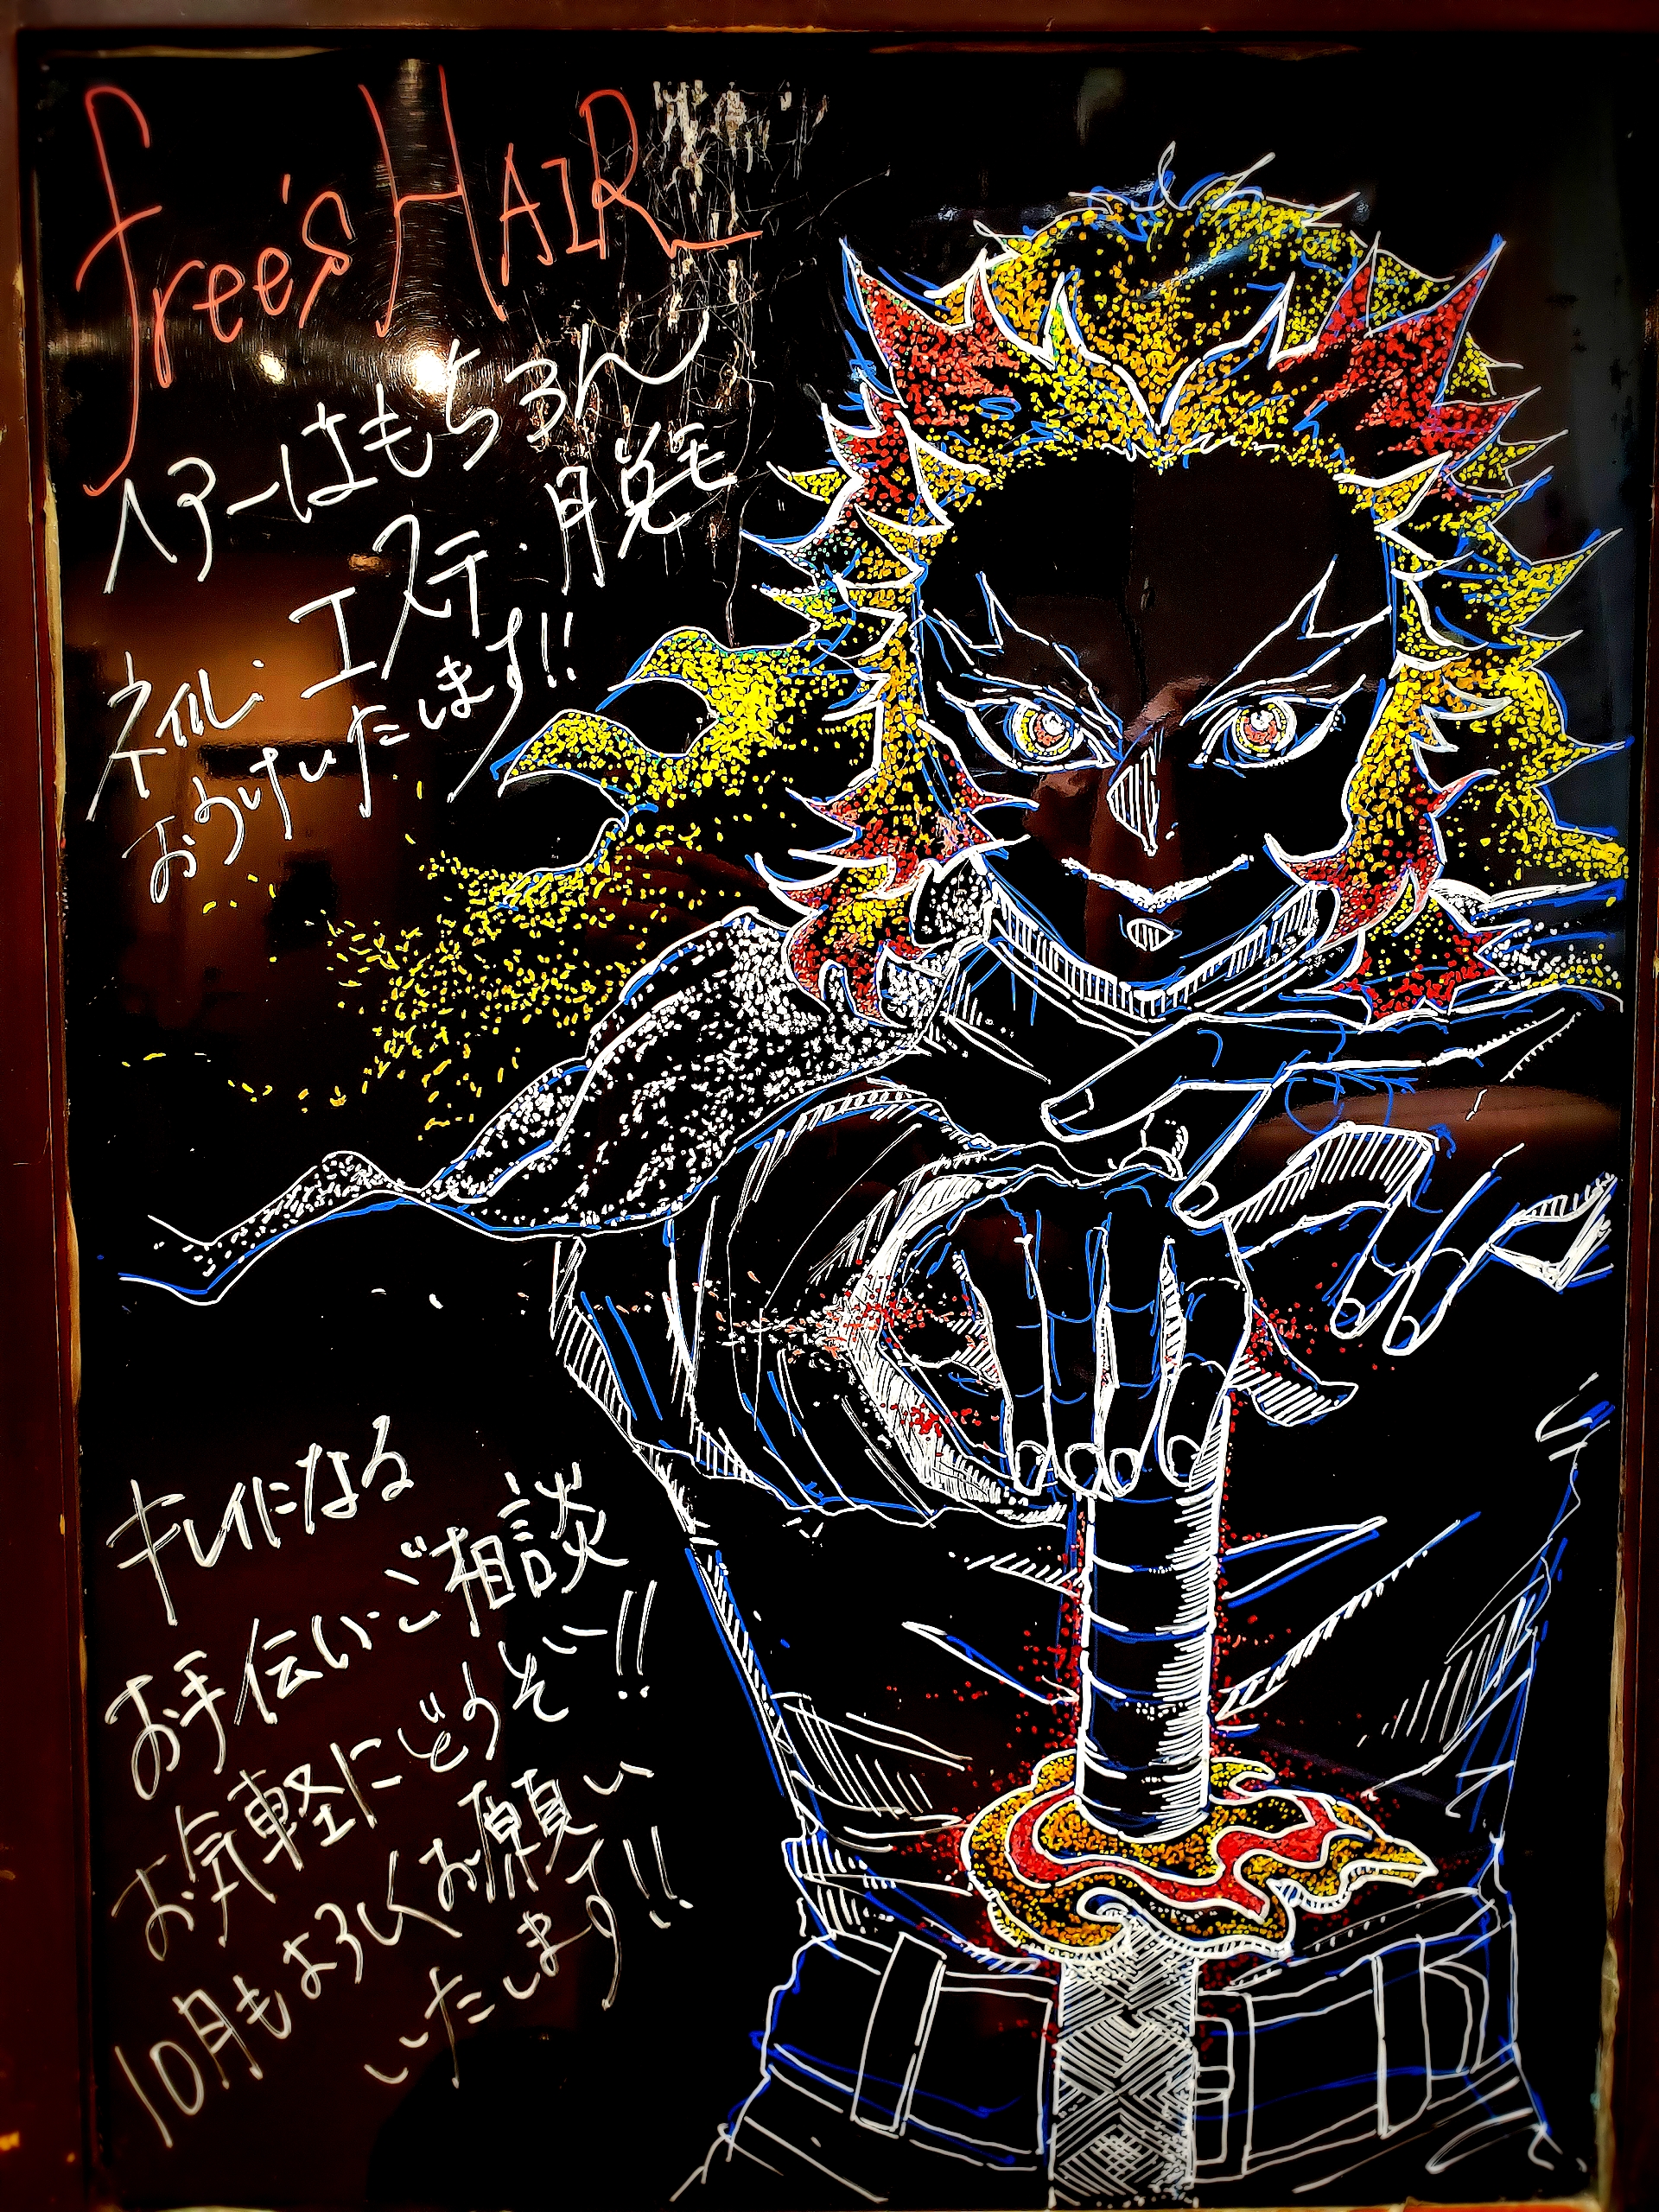 free's HAIR
ヘアーはもちろん
エステ・脱毛
ネイル・
おうけいたします!!
キレイになる
お手伝い・ご相談
お気軽にどうぞー!!
10月もよろしくお願い
いたします!!